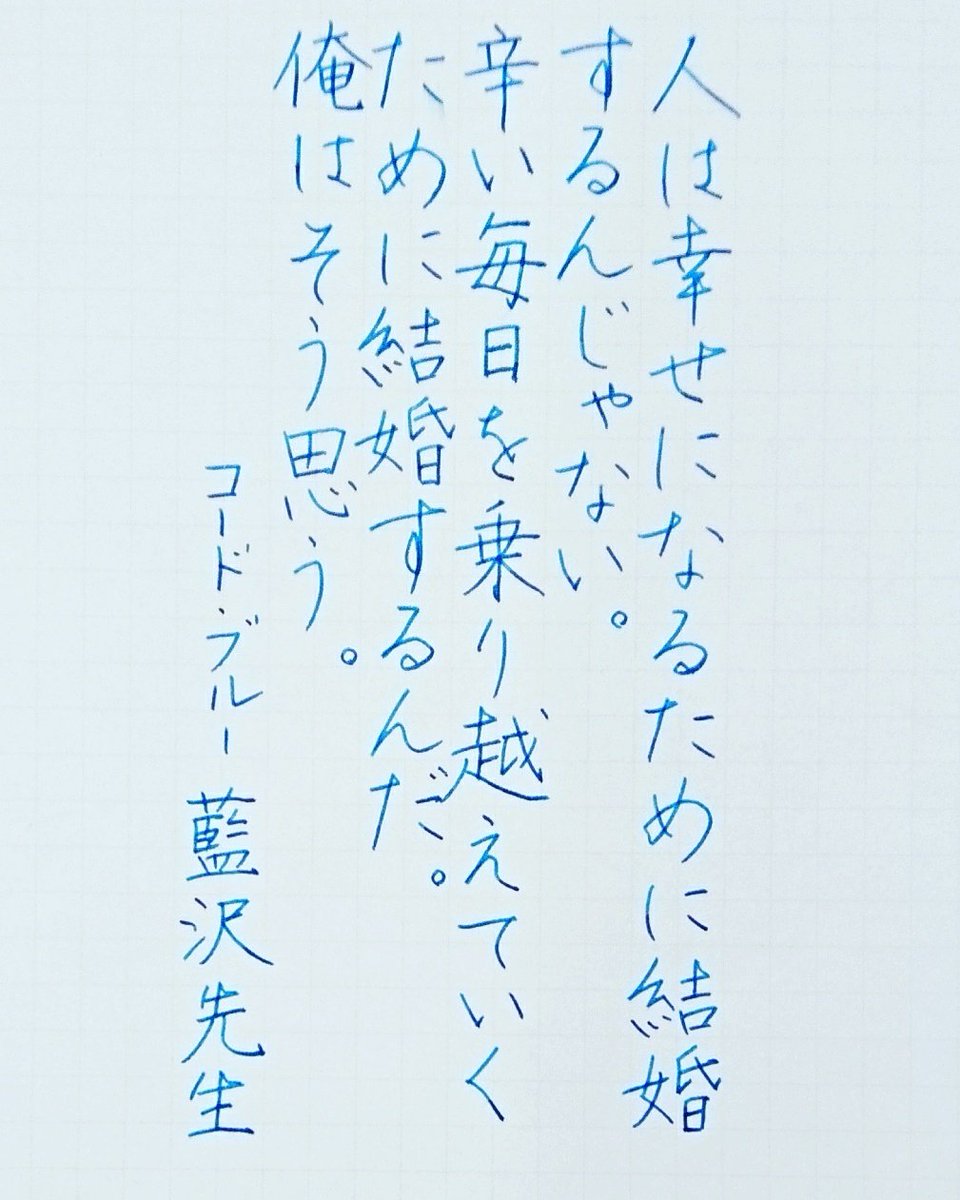 人は幸せになるために結婚
するんじゃない。
辛い毎日を乗り越えていく
ために結婚するんだ。
俺はそう思う。
コード・ブルー 藍沢先生